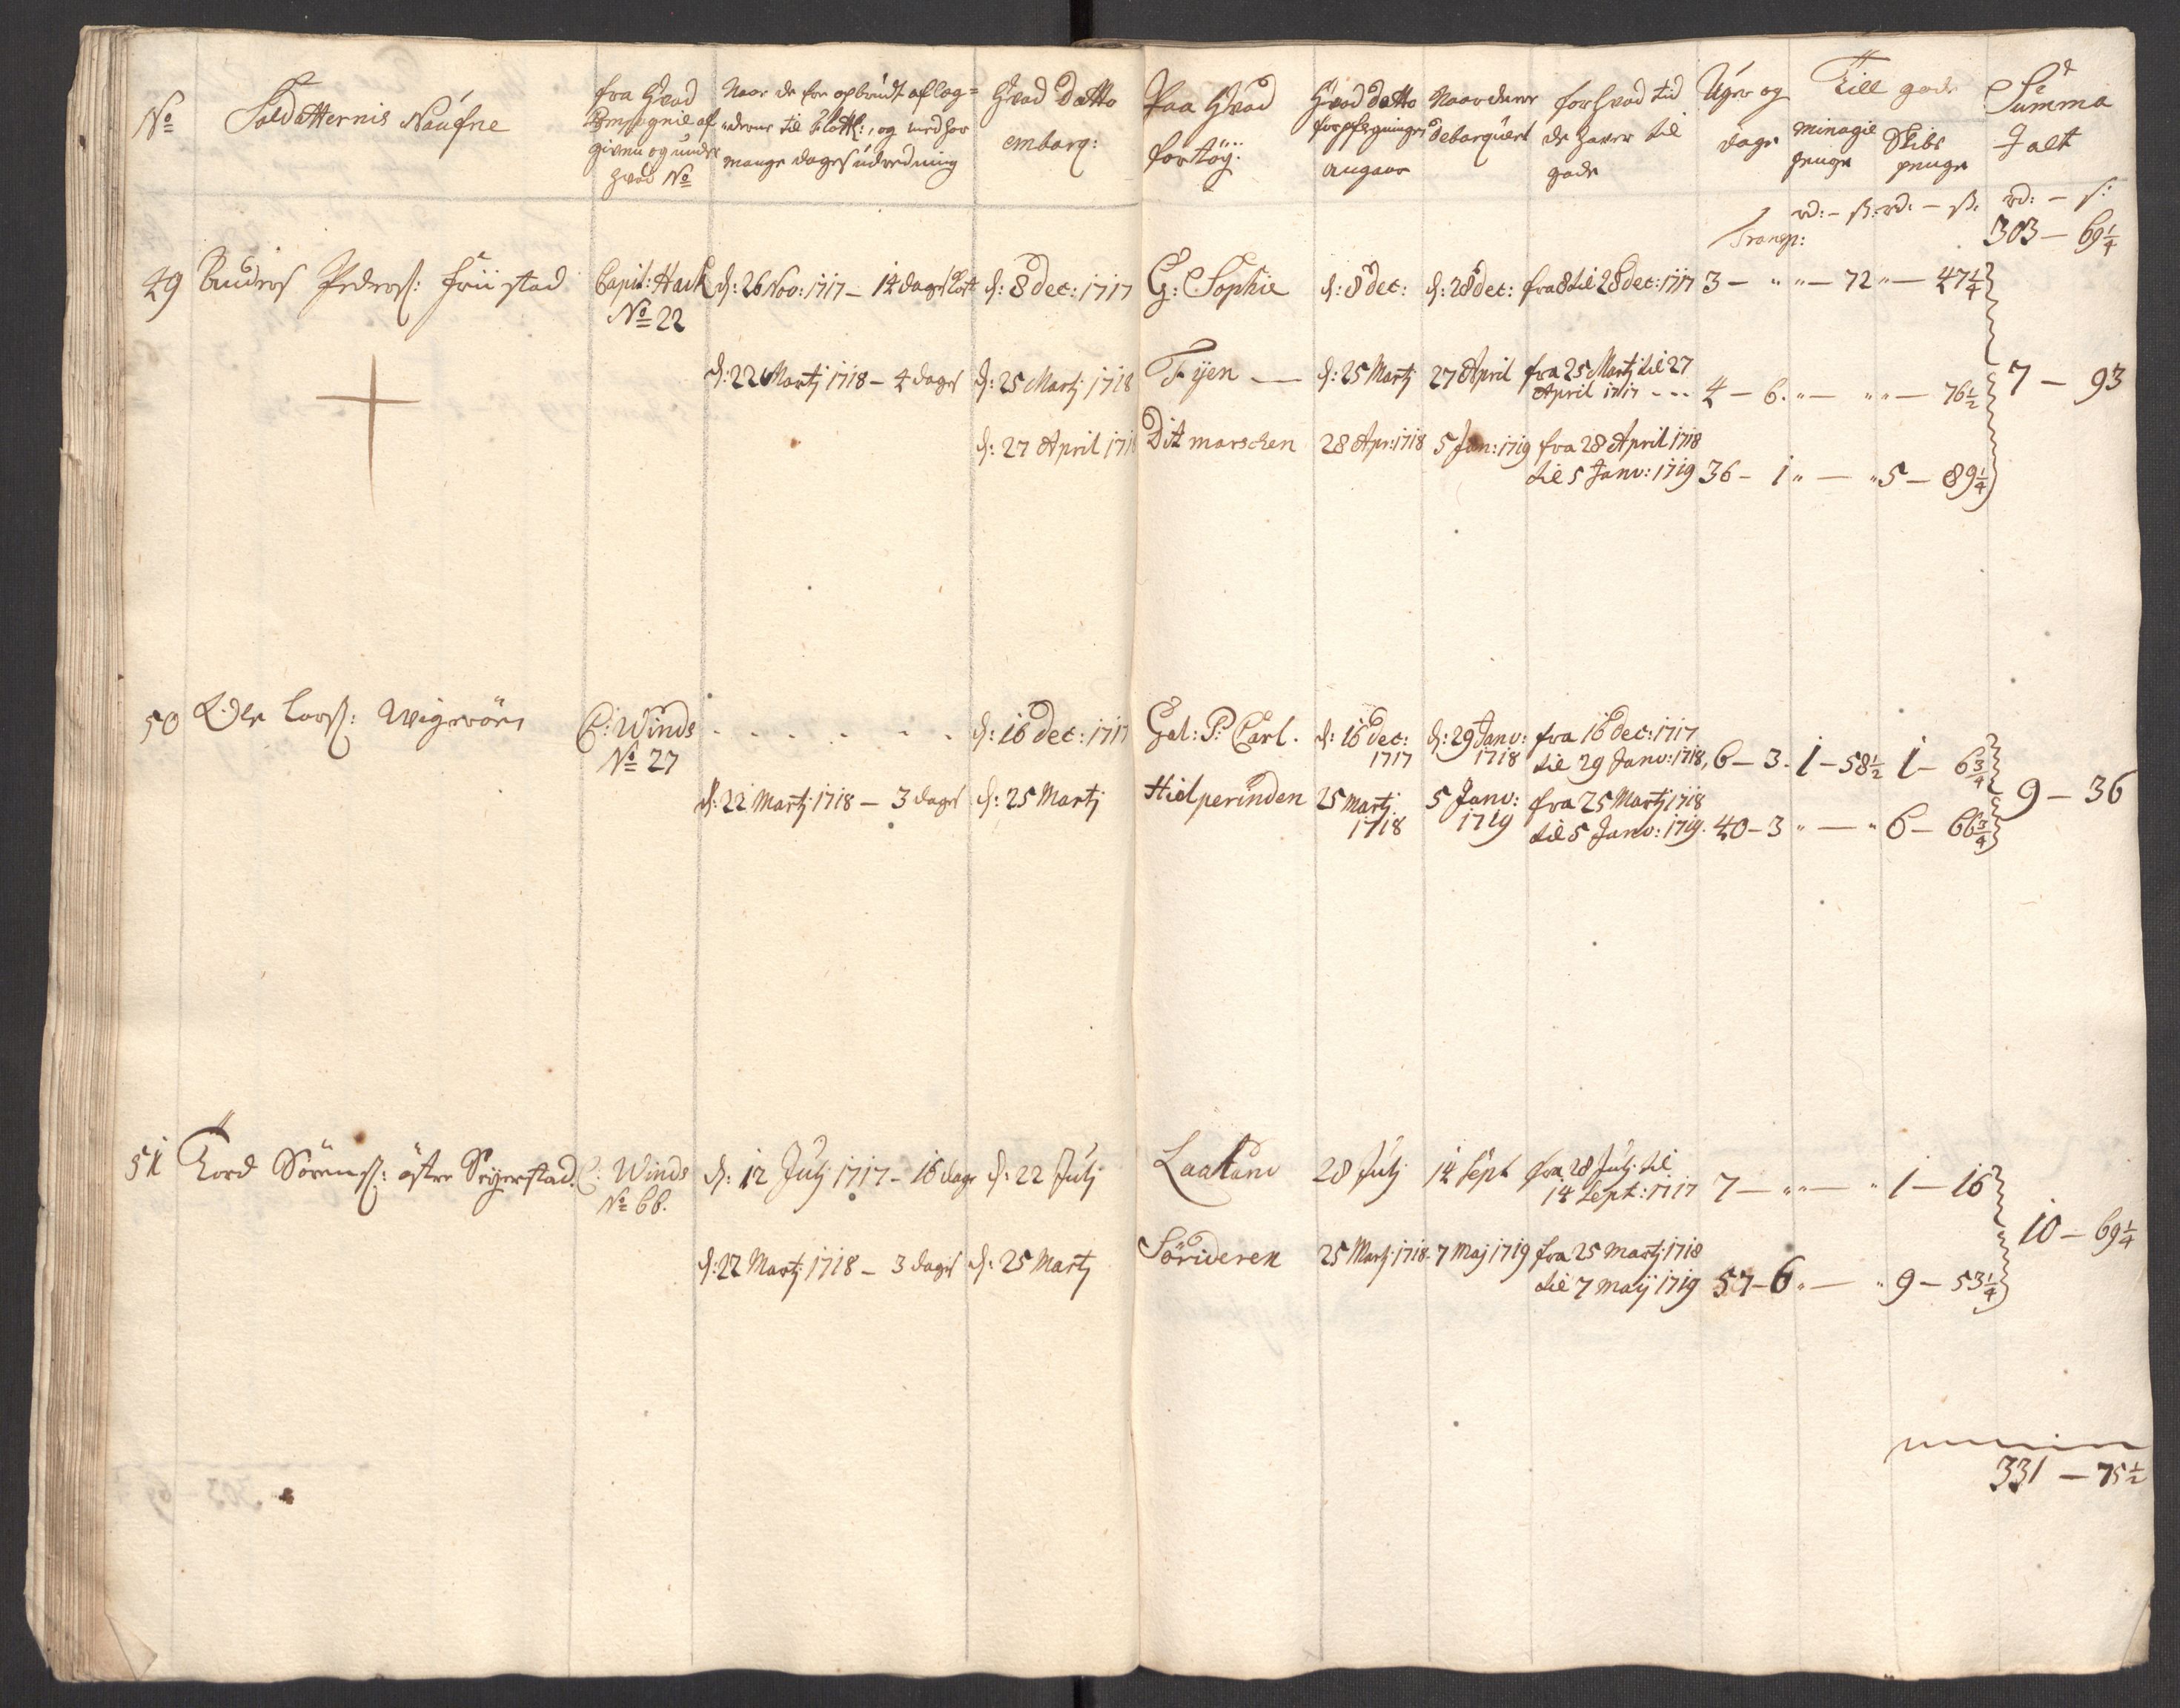 No
Soldatternis Naufne
fra Hvad
Compagnie af
given og under
hvad No
Naar de fra opbrudt af lag-
-derne til Flotte:, og med hvor
mange dages udredning
Hvad Datto
embarq:
Paa Hvad
fortöÿ:
Hvad datto
forpflegningen
angaar
Naar de ere
debarquert
for hvad tid
de haver til
gode
Uger og
dage
Till gode
minagie
penge
Skibs
penge
Summa
I alt
rd: – s: rd: – s: rd: – s:
Transp: 303 – 69 1/4
49 Anders Peders: Friistad Capit: Hack d: 26 Nov: 1717 – 14 dages Kost d: 8 dec: 1717 G: Sophie d: 8 dec: d: 28 dec: fra 8 til 28 dec: 1717 3 – " " – 72 " – 47 1/4
No 22
d: 22 Martj 1718 – 4 dages d: 25 Martj 1718 Fÿen — d: 25 Martj 27 April fra 25 Martj til 27
April 1717 --- 4 – 6. " – " " – 76 1/2 7 – 93
d: 27 April 1718 Ditmarschen 28 Apr: 1718 5 Jan: 1719 fra 28 April 1718
til 5 Janv: 1719 36 – 1 " – " 5 – 89 1/4
50 Ole Lars: Wigeröen C: Winds - - - - - - d: 16 dec: 1717 Gal: P: Carl. d: 16 dec: 1717 d: 29 Janv: 1718 fra 16 dec: 1717
No 27 til 29 Janv: 1718, 6 – 3. 1 – 58 1/2 1 – 6 3/4
d: 22 Martj 1718 – 3 dages d: 25 Martj Hielperinden 25 Martj 1718 5 Janv: 1719 fra 25 Martj 1718 9 – 36
til 5 Janv: 1719. 40 – 3 " – " 6 – 66 3/4
51 Tord Sörens: östre C: Winds d: 12 Julj 1717 – 16 dage d: 22 Julj Laaland 28 Julj 14 Sept fra 28 Julj til
No 66. 14 Sept: 1717 7 – " " – " 1 – 16
10 – 69 1/4
d: 22 Martj 1718 – 3 dages d: 25 Martj Sörideren 25 Martj 1718 7 Maj 1719 fra 25 Martj 1718
til 7 Maÿ 1719 57 – 6 " – " 9 – 53 1/4
331 – 75 1/2